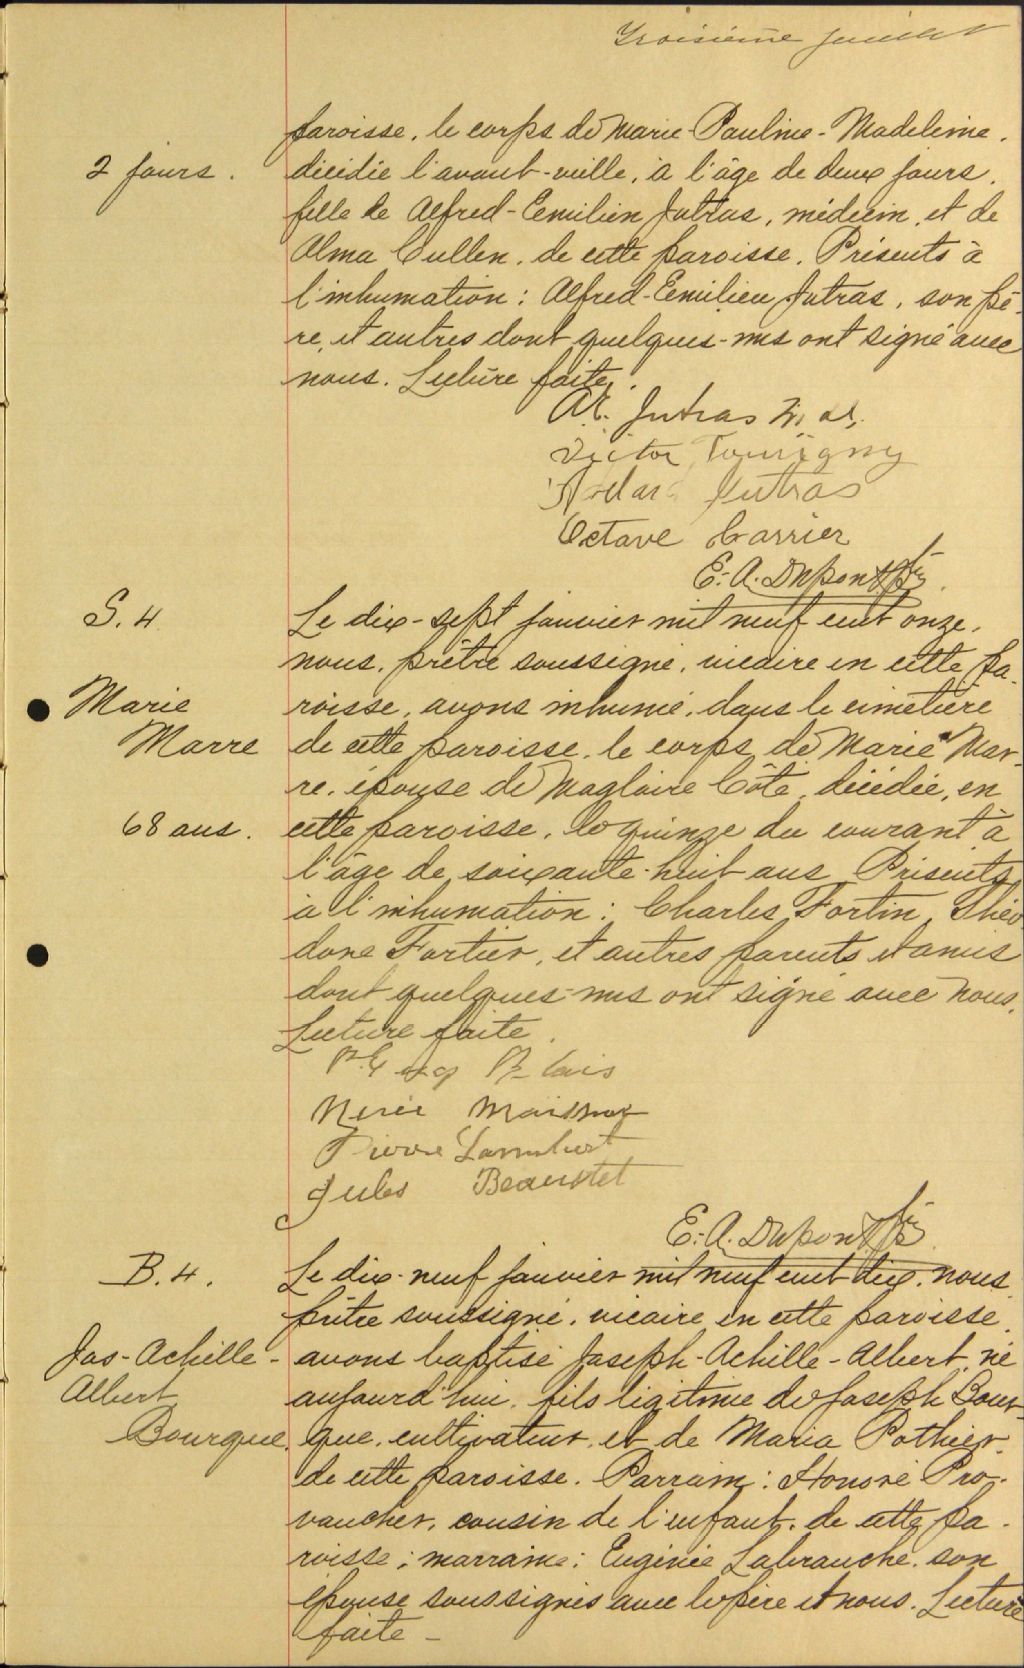 Troisième feuillet
paroisse, le corps de Marie-Pauline-Madeleine,
2 jours.
décédée l'avant-veille, à l'âge de deux jours,
fille de Alfred-Emilien Jutras, médecin, et de
Alma Cullen, de cette paroisse. Présents à
l'inhumation: Alfred-Emilien Jutras, son pè-
re, et autres dont quelques-uns ont signé avec
nous. Lecture faite.
A.E. Jutras M.D.
Victor Tourigny
Jutras
Octave Carrier
E.-A. Dupont, Ptr.
S. 4
Le dix-sept janvier mil neuf cent onze,
nous, prêtre soussigné, vicaire en cette pa-
Marie
roisse, avons inhumé, dans le cimetière
Marre
de cette paroisse, le corps de Marie Mar-
re, épouse de Magloire Côté, décédée, en
68 ans.
cette paroisse, le quinze du courant à
l'âge de soixante-huit ans. Présents
à l'inhumation: Charles Fortin, Théo
dore Fortier, et autres parents et amis
dont quelques-uns ont signé avec nous.
Lecture faite.
Blais
Nérée
Pierre Lambert
Jules
E.-A. Dupont, Ptr.
B. 4.
Le dix-neuf janvier mil neuf cent dix, nous
prêtre soussigné, vicaire en cette paroisse,
Jos-Achille-
avons baptisé Joseph-Achille-Albert, né
Albert
aujourd'hui, fils légitime de Joseph Bour-
Bourque.
que, cultivateur, et de Maria Pothier,
de cette paroisse. Parrain: Honoré Pro-
vencher, cousin de l'enfant, de cette pa-
roisse; marraine: Eugénie Labranche, son
épouse soussignés avec le père et nous. Lecture
faite -